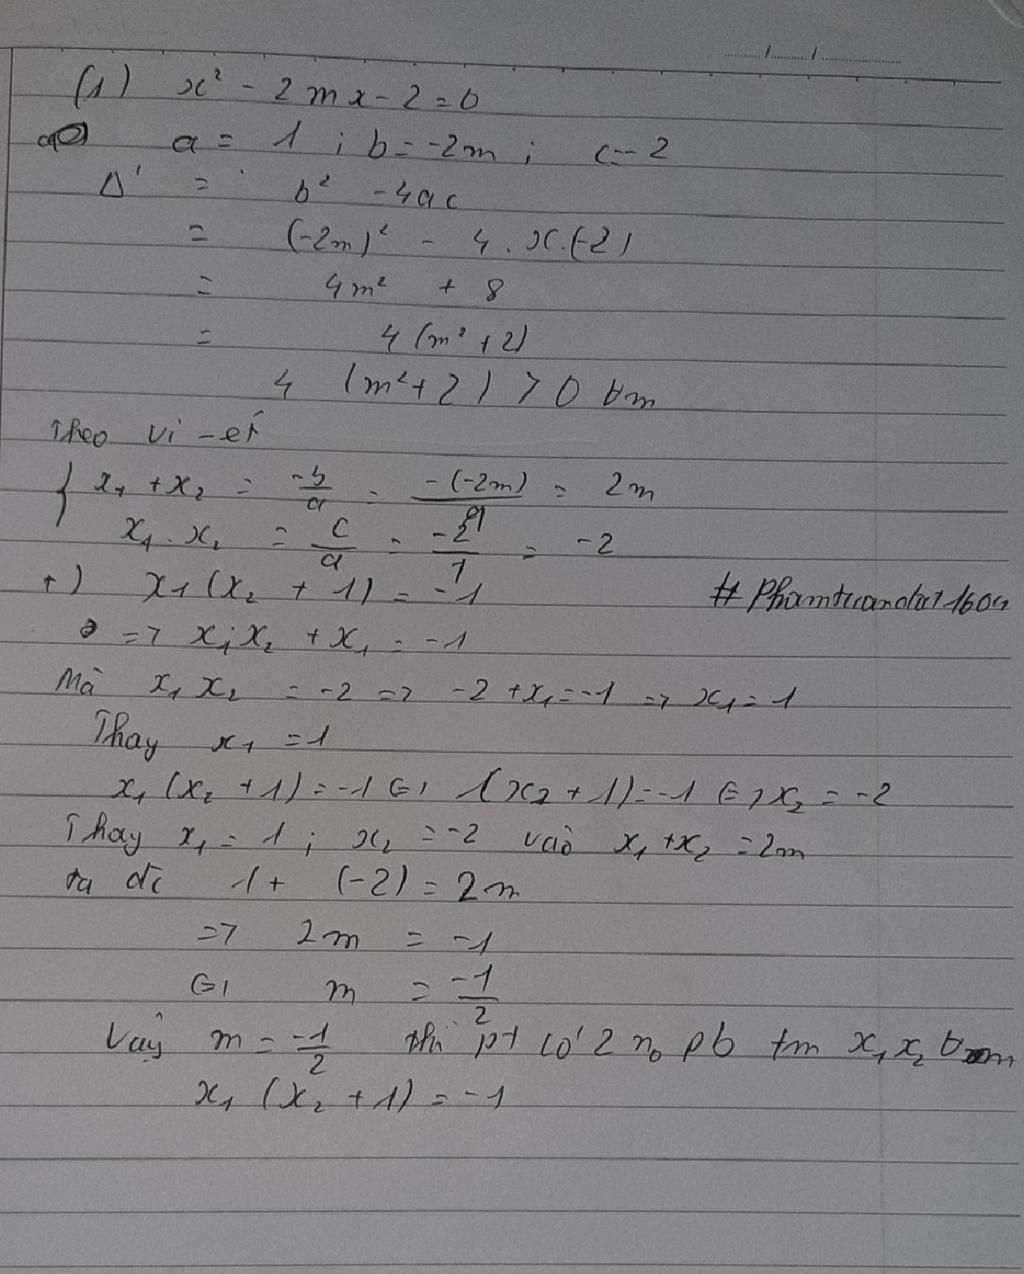 (1) x² - 2mx - 2 = 0
a = 1 ; b = -2m ; c = -2
Δ' = b² - 4ac
= (-2m)² - 4.x.(-2)
= 4m² + 8
= 4(m² + 2)
4 (m² + 2) > 0 ∀m
Theo vi-ét
{ x₁ + x₂ = -b/a = -(-2m)/1 = 2m
x₁ . x₂ = c/a = -2/1 = -2
+) x₁(x₂ + 1) = -1
# Phamtuandat1604
=> x₁x₂ + x₁ = -1
Mà x₁x₂ = -2 => -2 + x₁ = -1 => x₁ = 1
Thay x₁ = 1
x₁(x₂ + 1) = -1 <=> 1(x₂ + 1) = -1 <=> x₂ = -2
Thay x₁ = 1 ; x₂ = -2 vào x₁ + x₂ = 2m
ta đc 1 + (-2) = 2m
=> 2m = -1
<=> m = -1/2
Vậy m = -1/2 thì pt có 2 n₀ pb tm x₁ x₂
x₁(x₂ + 1) = -1